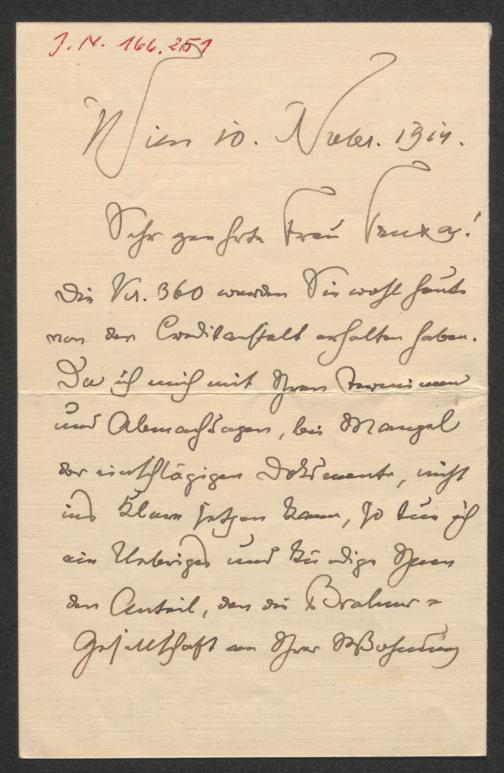 J.N. 166.251
Wien 10. Novber. 1914.
Sehr geehrte Frau Truxa!
Die Kr. 360 werden Sie wohl heute
von der Creditanstalt erhalten haben.
Da ich mich mit Ihren Terminen
und Abmachungen, bei Mangel
der einschlägigen Dokumente, nicht
ins Klare setzen kann, so tue ich
ein Uebriges und kündige Ihnen
den Anteil, den die Brahms=
Gesellschaft an Ihrer Wohnung